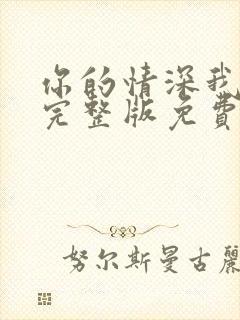 你的情深我
完整版免費
努尔斯曼古麗